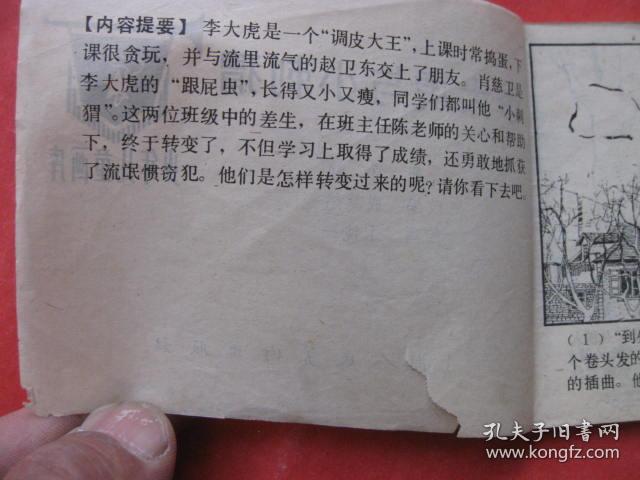 【内容提要】 李大虎是一个“调皮大王”，上课时常捣蛋，下
课很贪玩，并与流里流气的赵卫东交上了朋友。肖慈卫是
李大虎的“跟屁虫”，长得又小又瘦，同学们都叫他“小刺
猬”。这两位班级中的差生，在班主任陈老师的关心和帮助
下，终于转变了，不但学习上取得了成绩，还勇敢地抓获
了流氓惯窃犯。他们是怎样转变过来的呢？请你看下去吧。
（1）“到
个卷头发的
的插曲。他
孔夫子旧书网
www.kongfz.com